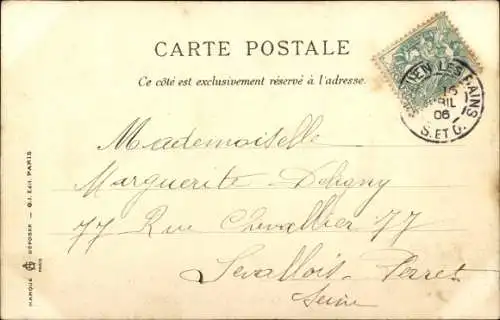 CARTE POSTALE
Ce côté est exclusivement réservé à l'adresse.
LES BAINS
AVRIL
06
S. ET O.
Mademoiselle
Marguerite
77 Rue Chevallier 77
Levallois-Perret
Seine
MARQUE DÉPOSÉE — G.I. Edit. PARIS